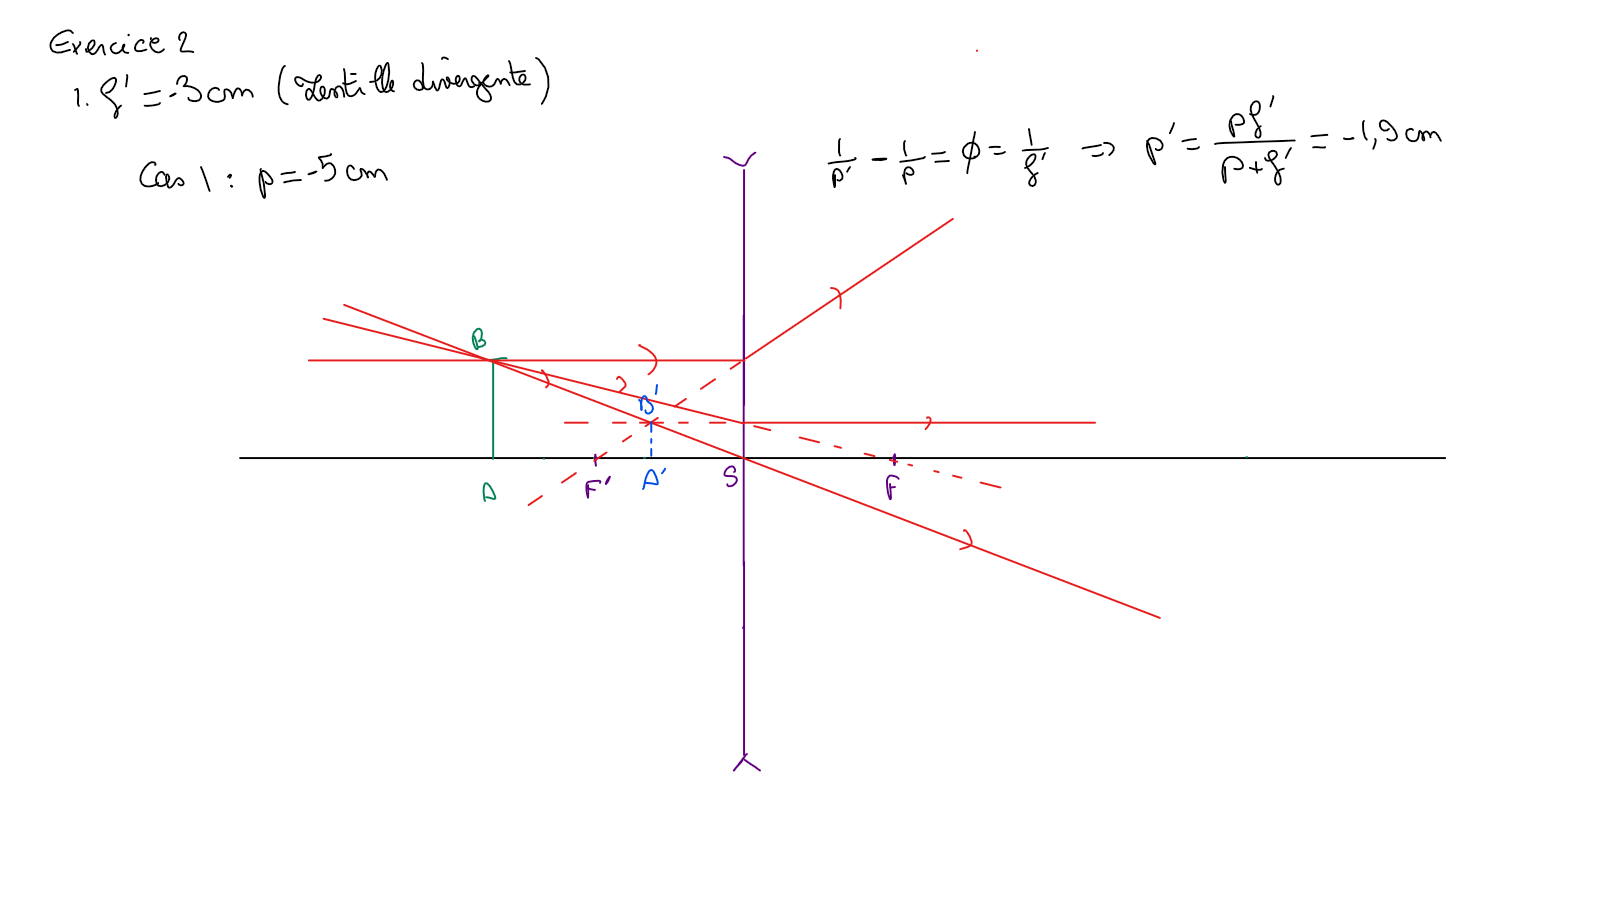 Exercice 2
1. f' = -3 cm (Lentille divergente)
Cas 1 : p = -5 cm
1/p' - 1/p = ϕ = 1/f' ⇒ p' = pf'/p+f' = -1,9 cm
B
B'
A
F'
A'
S
F